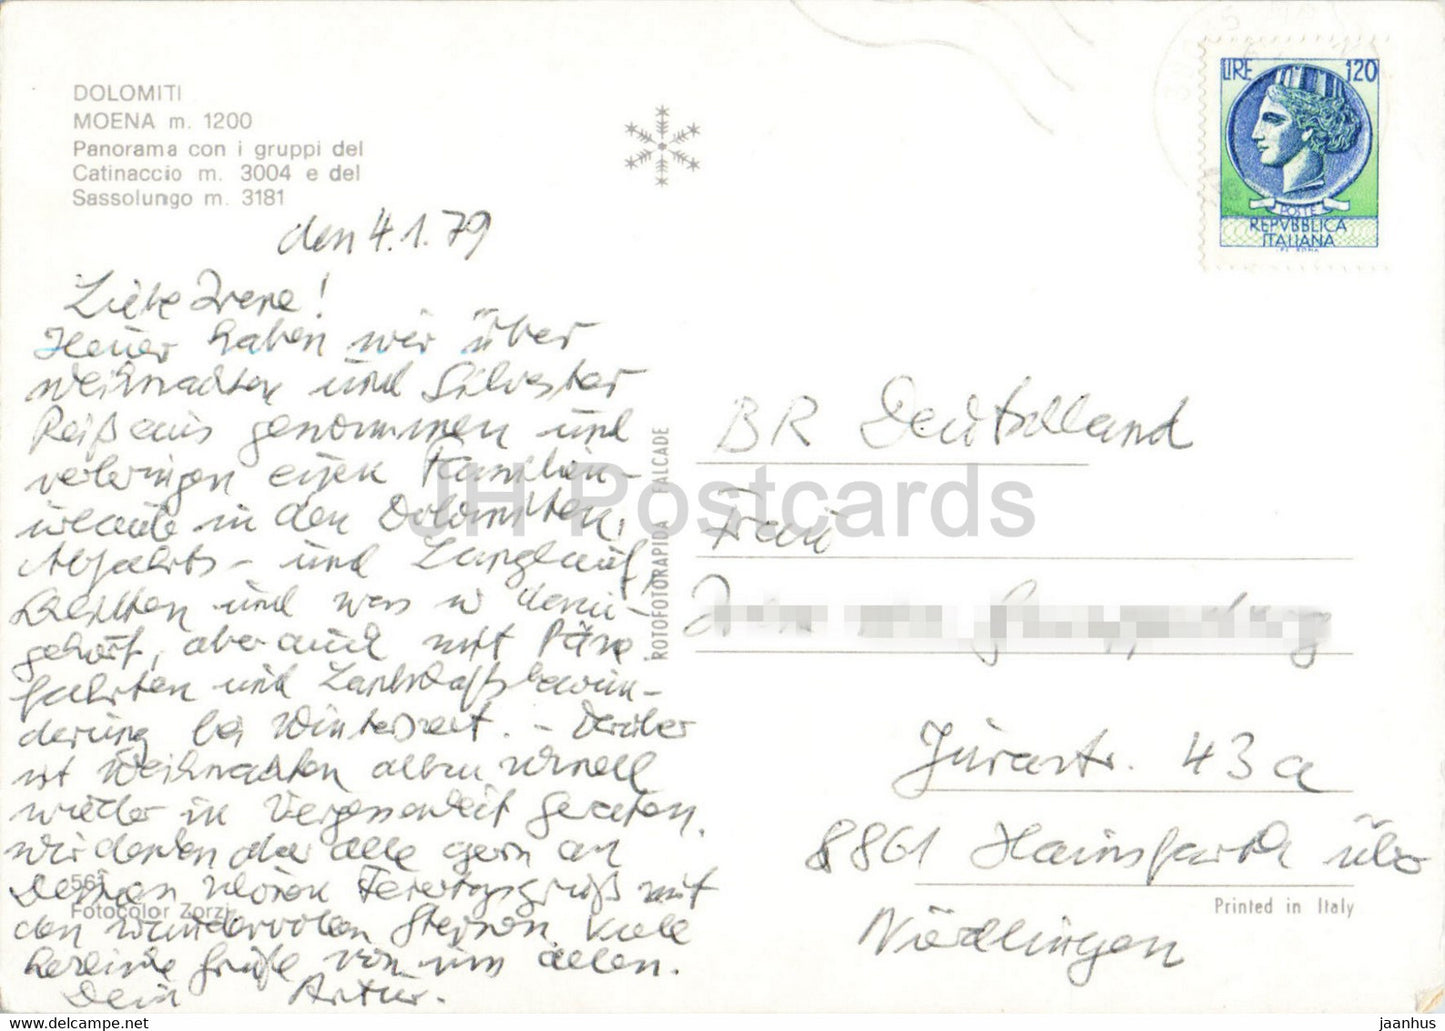 DOLOMITI
MOENA m. 1200
Panorama con i gruppi del
Catinaccio m. 3004 e del
Sassolungo m. 3181
den 4.1.79
Liebe Irene!
Heuer haben wir über
Weihnachten und Silvester
Reißaus genommen und
verbringen einen Familien-
urlaub in den Dolomiten,
Abfahrts- und Langlauf,
Schlitten und was so dazu-
gehört, aber auch mit
fahrten und Landschaftsbewun-
derung bei Winterszeit. - Darüber
ist Weihnachten allzu schnell
wieder in Vergessenheit geraten.
Wir denken aber alle gern an
Deinen schönen Feiertagsgruß mit
den wundervollen Sternen. Viele
herzliche Grüße von uns allen.
Dein Artur.
561
Fotocolor Zorzi
ROTOFOTORAPIDA FALCADE
LIRE 120
POSTE
REPVBBLICA
ITALIANA
BR Deutschland
Frau
Jurastr. 43a
8861 Hainsfarth über
Nördlingen
Printed in Italy
JH Postcards
jaanhus.com